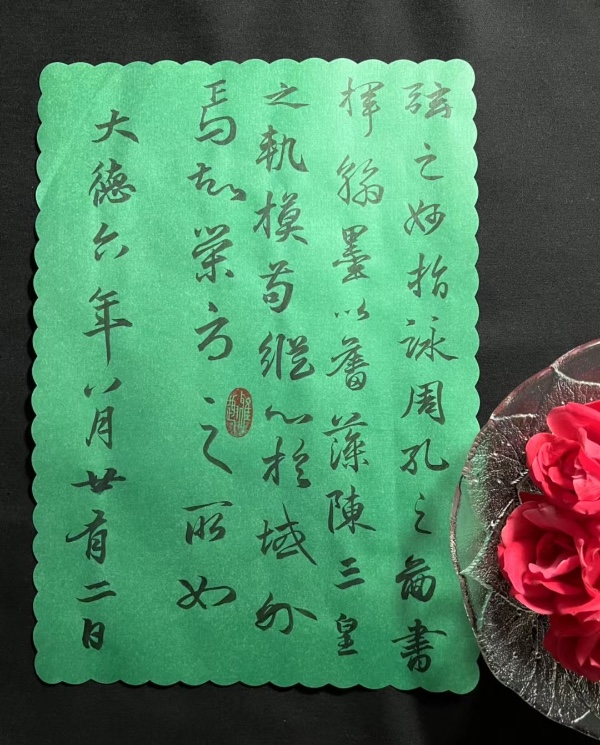 弦之妙指詠周孔之啚書
揮翰墨以奮藻陳三皇
之軌模苟縱心於域外
焉知榮辱之所如
大德六年八月廿有二日